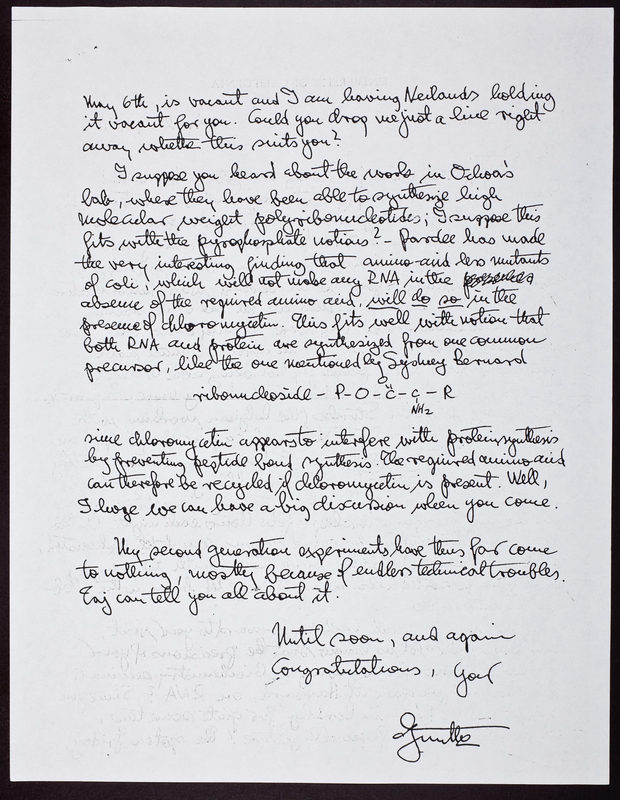 May 6th, is vacant and I am having Neilands holding
it vacant for you. Could you drop me just a line right
away whether this suits you?
I suppose you heard about the work in Ochoa's
lab, where they have been able to synthesize high
molecular weight polyribonucleotides; I suppose this
fits with the pyrophosphate notions? – Pardee has made
the very interesting finding that amino-acid-less mutants
of coli, which will not make any RNA in the
absence of the required amino acid, will do so in the
presence of chloromycetin. This fits well with notion that
both RNA and protein are synthesized from one common
precursor, like the one mentioned by Sydney Bernard
ribonucleoside – P – O – C – C – R
O
NH2
since chloromycetin appears to interfere with protein synthesis
by preventing peptide bond synthesis. The required amino acid
can therefore be recycled if chloromycetin is present. Well,
I hope we can have a big discussion when you come.
My second generation experiments have thus far come
to nothing, mostly because of endless technical troubles.
can tell you all about it.
Until soon, and again
Congratulations, your
Gunther